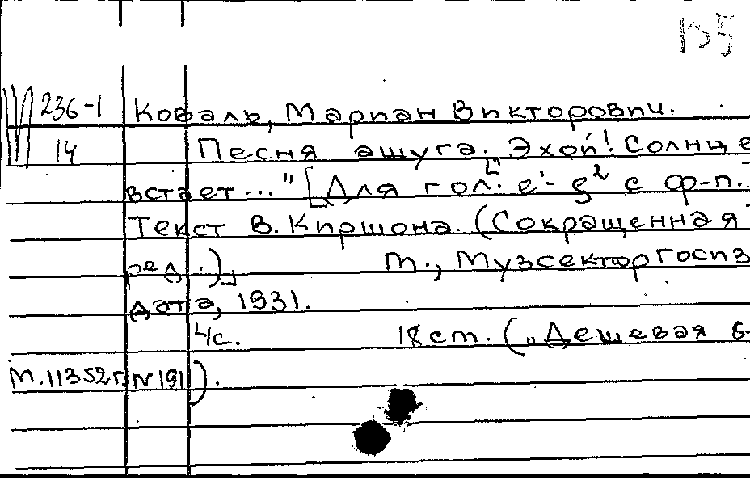 135
236-1 Коваль, Мариан Викторович.
14 Песня ашуга. Эхой! Солнце
встает..." [Для гол. e¹-g² с ф-п.
Текст В. Киршона. (Сокращенная
ред.)] М., Музсектор Госиз
дата, 1931.
4 с. 18 см. („Дешевая б-
М.11352г. №191).